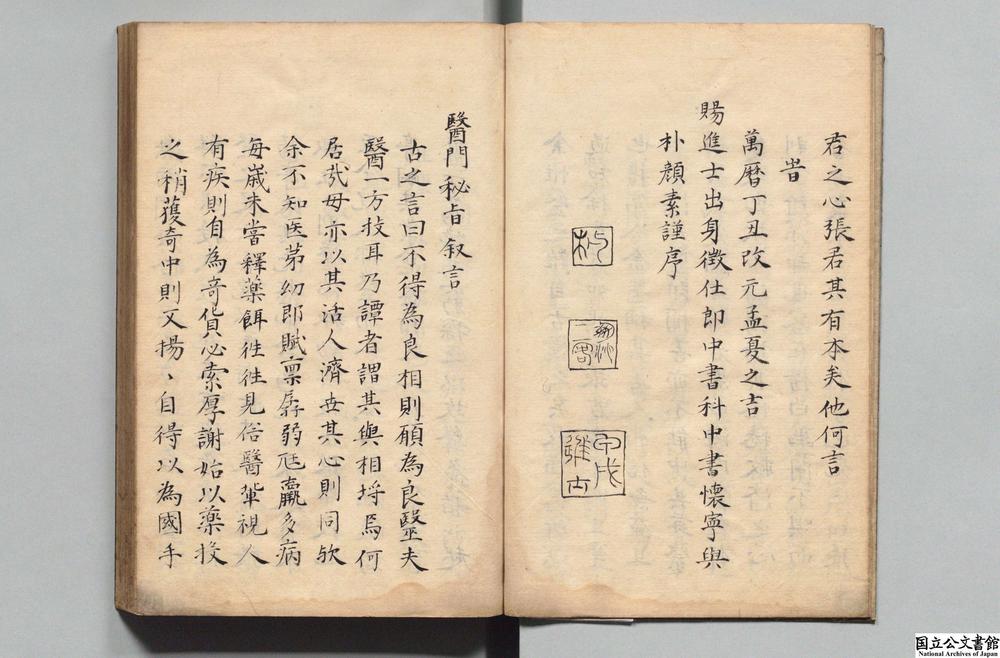 君之心張君其有本矣他何言
旹
萬曆丁丑改元孟夏之吉
賜進士出身徴仕郎中書科中書懷寧與
朴顔素謹序
甲戌
進士
醫門秘旨叙言
古之言曰不得為良相則願為良毉夫
醫一方技耳乃譚者謂其與相埒焉何
居㢤毋亦以其活人濟世其心則同欤
余不知医苐幼即賦禀孱弱尫羸多病
每歲未嘗釋藥餌徃徃見俗醫軰視人
有疾則自為竒貨必索厚謝始以藥投
之稍獲奇中則又揚、自得以為國手
国立公文書館
National Archives of Japan